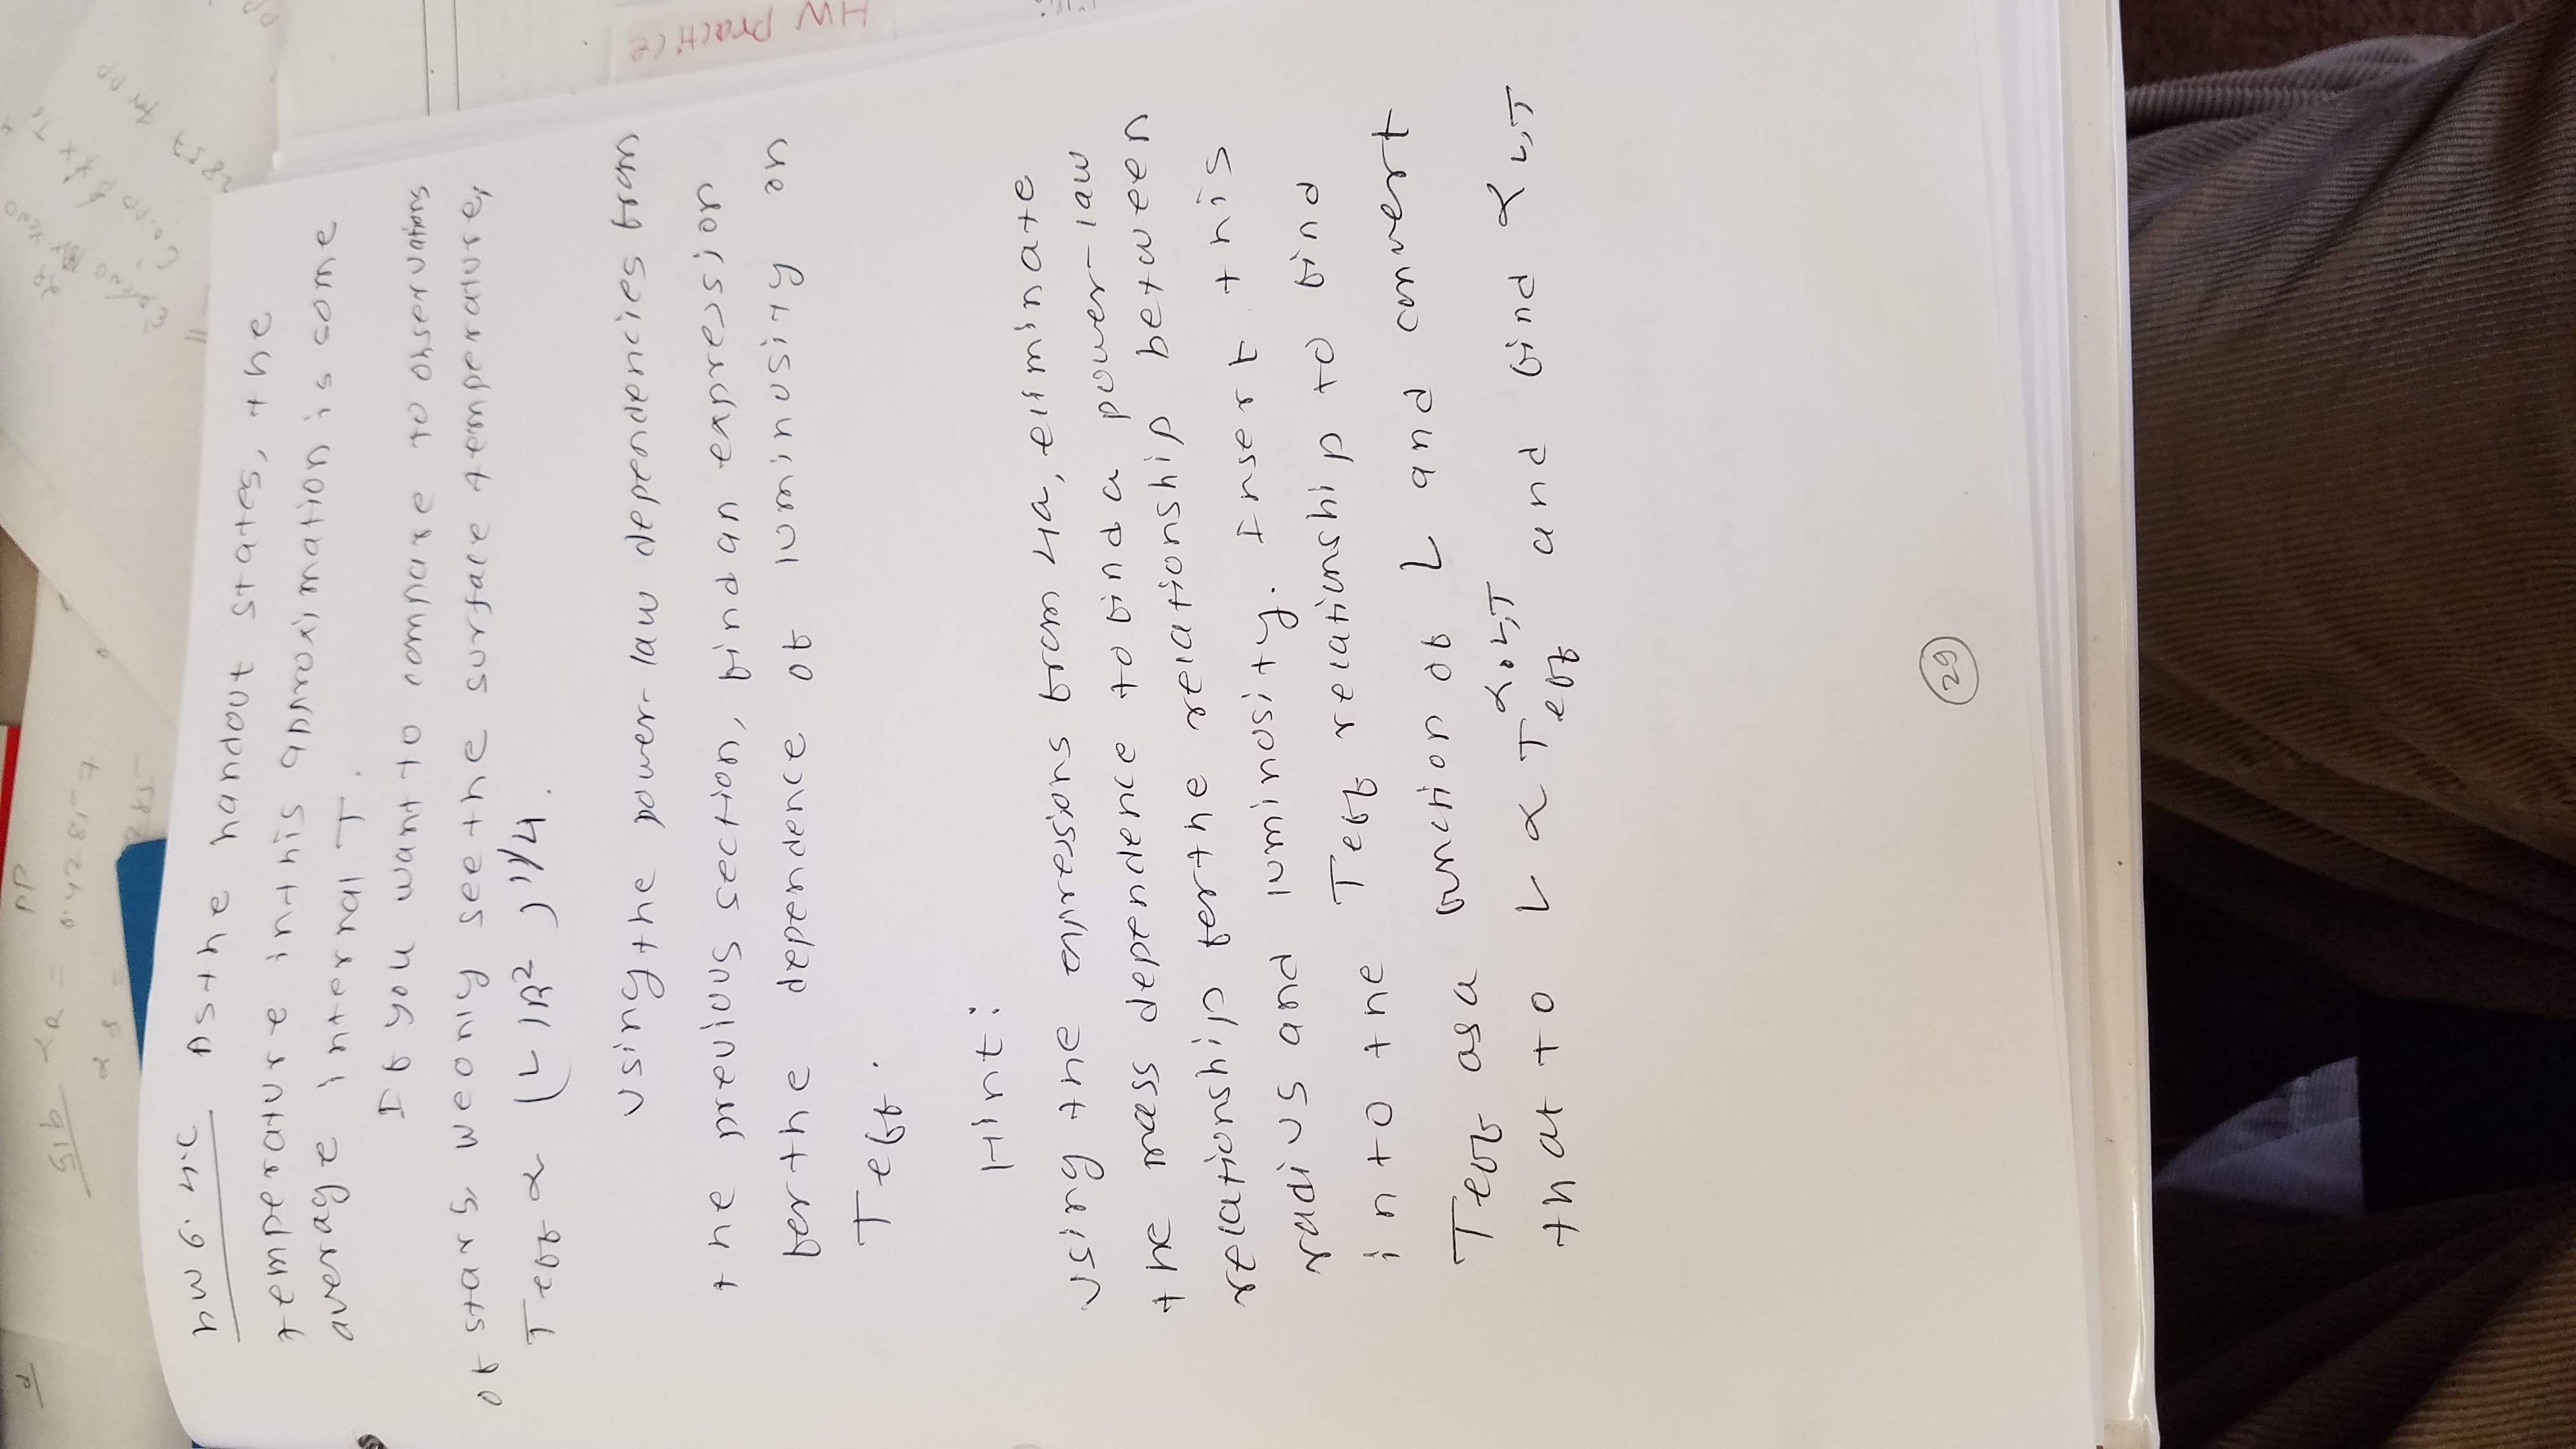 PP
51b αR = 0.42857
285
2857 for PP
HW 6.4.C As the handout states, the
temperature in this approximation is some
average internal T.
If you want to compare to observations
of stars, we only see the surface temperature,
Teff ∝ (L/R²)^1/4.
Using the power-law dependencies from
the previous section, find an expression
for the dependence of luminosity on
Teff.
Hint:
Using the expressions from 4a, eliminate
the mass dependence to find a power-law
relationship for the relationship between
radius and luminosity. Insert this
into the Teff relationship to find
Teff as a function of L and convert
that to L ∝ Teff^αL,T and find αL,T
29
HW practice